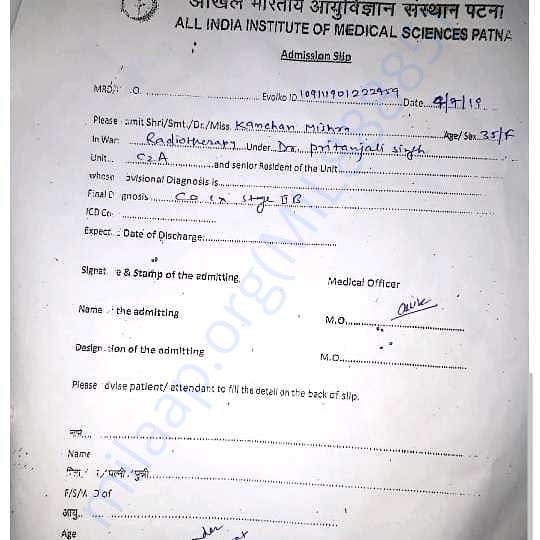 अखिल भारतीय आयुर्विज्ञान संस्थान पटना
ALL INDIA INSTITUTE OF MEDICAL SCIENCES PATNA
Admission Slip
MRD O. Evolko ID 109111901222959 Date 4/9/19
Please mit Shri/Smt./Dr./Miss. Kanchan Mishra Age/Sex 35/F
In War Radiotherapy Under Dr. pritanjali singh
Unit C2A and senior Resident of the Unit
whose ovisional Diagnosis is
Final D gnosis Ca cx stage II B
ICD Co
Expect Date of Discharge:
Signat e & Stamp of the admitting. Medical Officer
Name the admitting M.O.
Design tion of the admitting M.O.
Please dvise patient/ attendant to fill the detail on the back of slip.
Name
पिता / पत्नी / पुत्री
F/S/ D of
आयु
Age
milaap.org